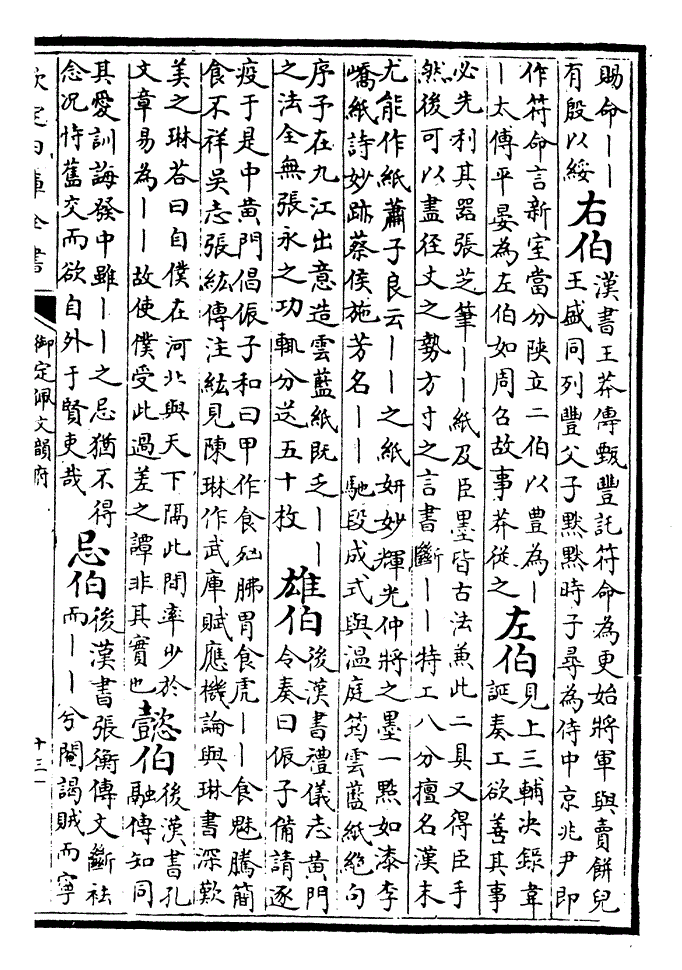 賜命丨丨
有殷以綏
右伯
漢書王莽傳甄豐託符命為更始將軍與賣餅兒
王盛同列豐父子默默時子尋為侍中京兆尹即
作符命言新室當分陝立二伯以豐為丨
丨太傅平晏為左伯如周召故事莽從之
左伯
見上三輔決錄韋
誕奏工欲善其事
必先利其器張芝筆丨丨紙及臣墨皆古法兼此二具又得臣手
然後可以盡徑丈之勢方寸之言書斷丨丨特工八分擅名漢末
尤能作紙蕭子良云丨丨之紙妍妙輝光仲將之墨一點如漆李
嶠紙詩妙跡蔡侯施芳名丨丨馳段成式與溫庭筠雲藍紙絶句
序予在九江出意造雲藍紙既乏丨丨
之法全無張永之功輒分送五十枚
雄伯
後漢書禮儀志黄門
令奏曰侲子備請逐
疫于是中黄門倡侲子和曰甲作食𣧑胇胃食虎丨丨食魅騰簡
食不祥吳志張紘傳注紘見陳琳作武庫賦應機論與琳書深歎
美之琳荅曰自僕在河北與天下隔此間率少於
文章易為丨丨故使僕受此過差之譚非其實也
懿伯
後漢書孔
融傳知同
其愛訓誨發中雖丨丨之忌猶不得
念况恃舊交而欲自外于賢吏哉
忌伯
後漢書張衡傳文斷袪
而丨丨兮閹謁賊而寧
欽定四庫全書
御定佩文韻府
十三